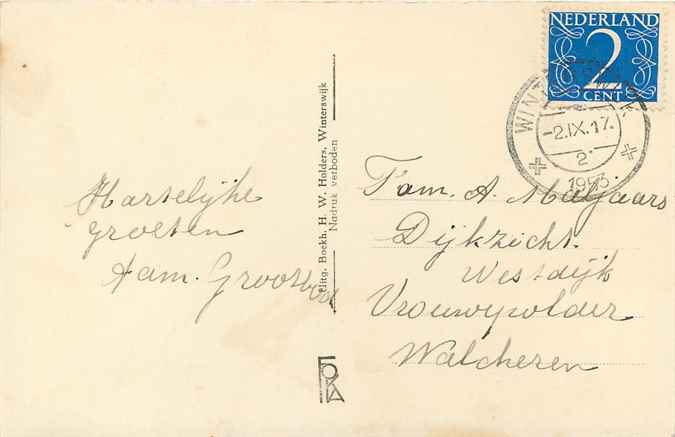 Hartelijke
groeten
fam. Grootbod
Uitg. Boekh. H. W. Holders, Winterswijk
Nadruk verboden
FOKA
NEDERLAND
2
CENT
WINTERSWIJK
-2.IX.17.
2
1953
Fam. A. Maljaars
Dijkzicht.
Westdijk
Vrouwepolder
Walcheren